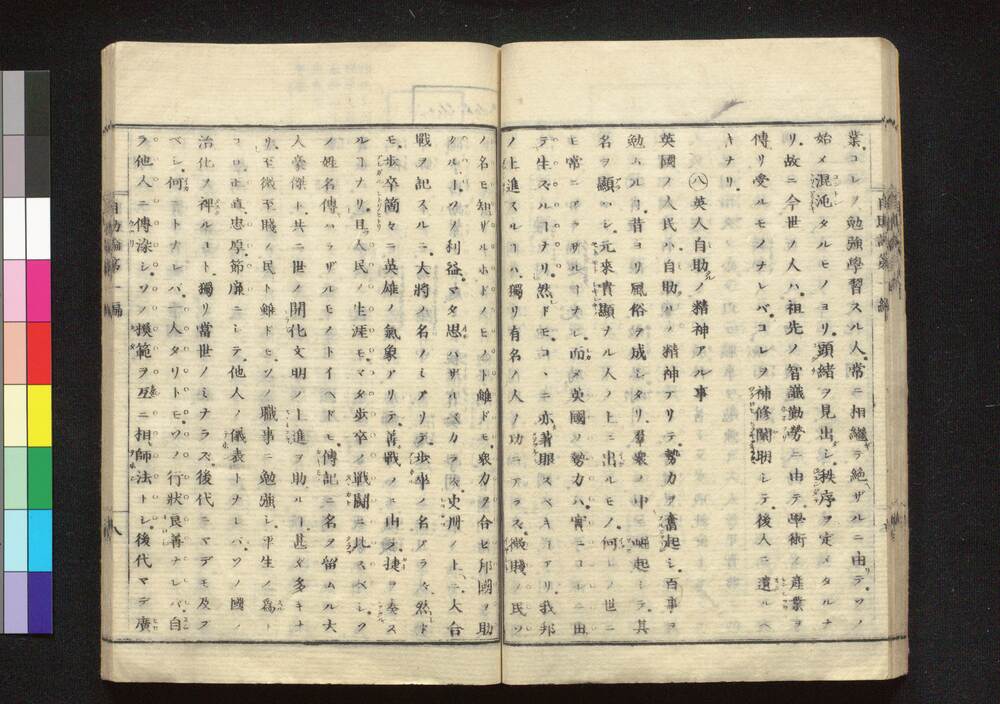 業コレノ勉強學習スル人常ニ相繼テ絶ザルニ由テソノ
始メ混沌タルモノヨリ頭緒ヲ見出シ秩序ヲ定メタルナ
リ故ニ今世ノ人ハ祖先ノ智識勤勞ニ由テ學術ト産業ヲ
傳リ受ルモノナレバコレヲ補修闡明シテ後人ニ遺ルベ
キナリ
八 英人自助ノ精神アル事
英國ノ人民ハ自助ルノ精神アリテ勢力ヲ奮起シ百事ヲ
勉ムルコト昔ヨリ風俗ヲ成シタリ羣衆ノ中ニ崛起シテ其
名ヲ顯ハシ元來貴顯ヲル人ノ上ニ出ルモノ何レノ世ニ
モ常ニアラザルコトナシ而メ英國ノ勢力ハ實ニコレニ由
テ生スルコナリ然ドモコヽニ亦著眼スベキコアリ我邦
ノ上進スルコハ獨リ有名ノ人ノ功ニアラズ微賤ノ民ソ
ノ名モ知ザルホドノモノト雖ドモ衆力ヲ合セ邦國ヲ助
クル一ツノ利益マタ思ハザルベカラズ史册ノ上ニ大合
戰ヲ記スルニ大將ノ名ノミアリテ歩卒ノ名アラズ然ド
モ歩卒箇々ニ英雄ノ氣象アリテ善戰ノニ由テ捷ヲ奏ス
ルコナリ且人民ノ生涯モマタ歩卒ノ戰鬪ニ比スベシソ
ノ姓名傳ハラザルモノトイヘドモ傳記ニ名ヲ留ムル大
人豪傑ト共ニ世ノ開化文明ノ上進ヲ助ルコ甚タ多キナ
リ至微至賤ノ民ト雖ドモソノ職事ニ勉強シ平生ノ爲ト
コロ正直忠厚節廉ニシテ他人ノ儀表トナレバソノ國ノ
治化ノ神ルコト獨リ當世ノミナラズ後代ニマデモ及ブ
ベシ何トナレバ一人タリトモソノ行狀良善ナレバ自
ラ他人ニ傳染シソノ模範ヲ互ニ相師法トシ後代マデ廣
自助論第一編
八